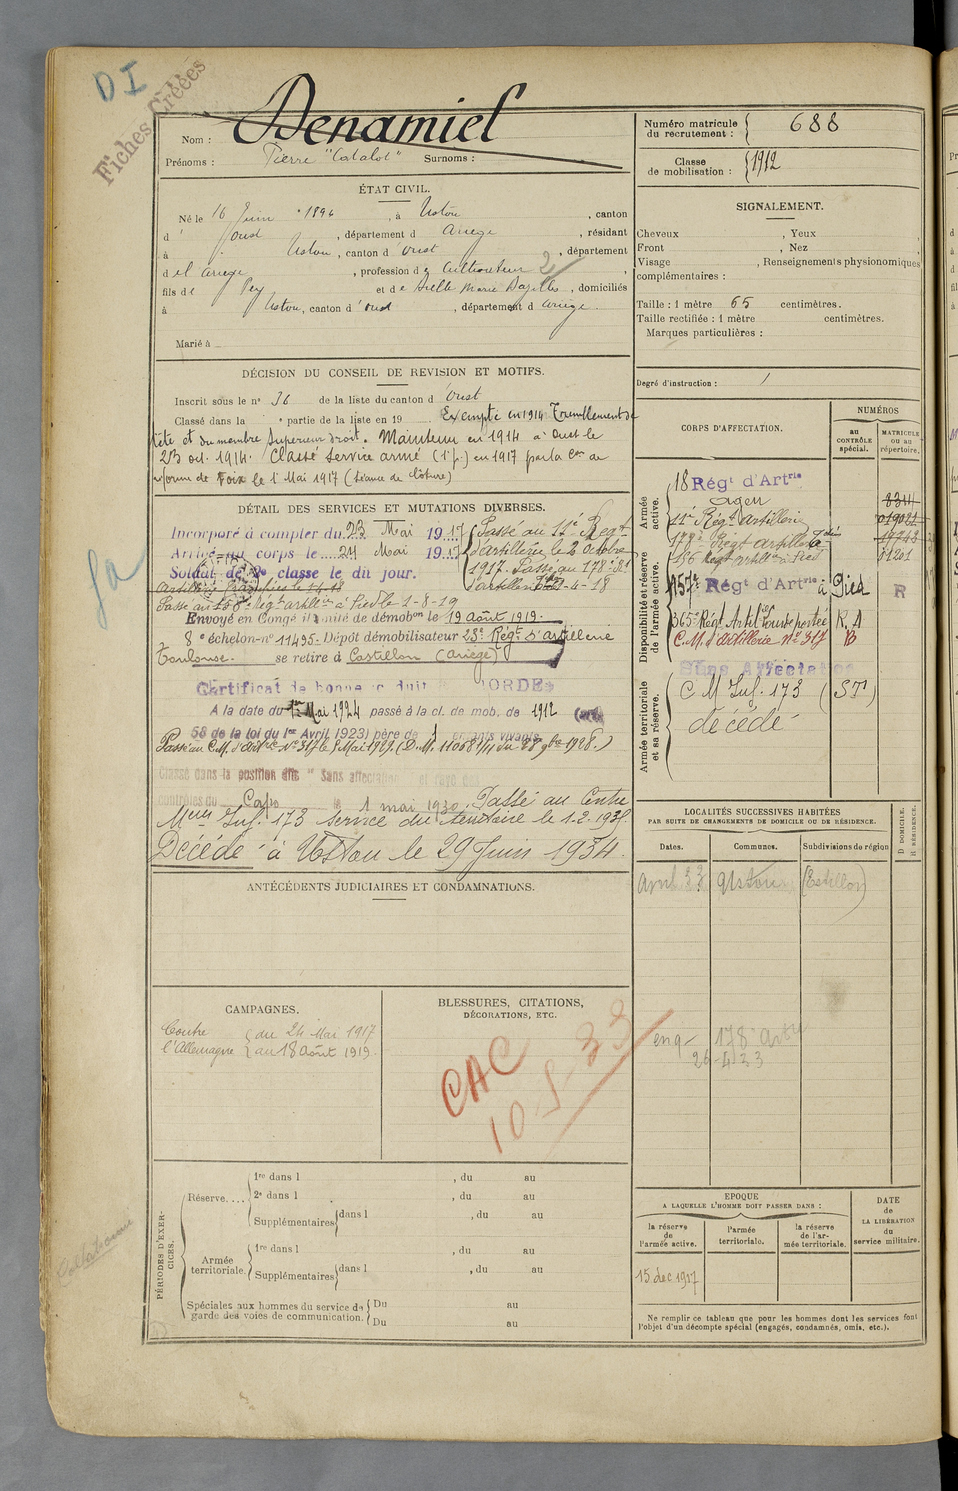 DI
Fiches Créées
Nom : Denamiel
Prénoms : Pierre "Catalot" Surnoms :
ÉTAT CIVIL.
Né le 16 Juin 1894, à Ustou, canton
d' Oust, département d Ariège, résidant
à Ustou, canton d'Oust, département
de l'Ariège, profession de Cultivateur 2
fils de Pey et de Marie, domiciliés
à Ustou, canton d'Oust, département d Ariège.
Marié à
DÉCISION DU CONSEIL DE REVISION ET MOTIFS.
Inscrit sous le n° 36 de la liste du canton d'Oust
Classé dans la e partie de la liste en 19 Exempté en 1914 Tremblement de
tête et du membre Supérieur droit. Maintenu en 1914 à Oust le
23 oct. 1914. Classé Service armé (1 p.) en 1917 par la Con de
réforme de Foix le 1 Mai 1917 (séance de clôture)
DÉTAIL DES SERVICES ET MUTATIONS DIVERSES.
Incorporé à compter du 23 Mai 1917
Arrivé au corps le 24 Mai 1917
Soldat de 2e classe le dit jour.
Passé au 11e Régt
d'artillerie le 2 Octobre
1917. Passé au 178e Rt
d'artillerie 1-4-18
Passé au 156e Régt artillie à Pied le 1-8-19
Envoyé en Congé illimité de démobon le 19 Août 1919.
8e échelon-n° 11495. Dépôt démobilisateur 23e Régt d'artillerie
Toulouse. se retire à Castillon (Ariège)
Certificat de bonne conduite ACCORDÉ
A la date du 1er Mai 1924 passé à la cl. de mob. de 1912 (art.
58 de la loi du 1er Avril 1923) père de 1 enfants vivants
Passé au C.M. d'artrie N° 317 le 1 Mai 1929 (D.M. 11068 1/11 du 28 9bre 1928.)
Classé dans la position dite "Sans affectation" et rayé des
contrôles du Corps le 1 mai 1930. Passé au Centre
Meur Inf. 173 service du territoire le 1.2.193
Décédé à Ustou le 29 Juin 1934.
ANTÉCÉDENTS JUDICIAIRES ET CONDAMNATIONS.
CAMPAGNES.
Contre l'Allemagne
du 24 Mai 1917
au 18 Août 1919.
BLESSURES, CITATIONS,
DÉCORATIONS, ETC.
CAC
10-5-33
PÉRIODES D'EXERCICES.
Réserve....
1re dans l , du au
2e dans l , du au
Supplémentaires dans l , du au
Armée territoriale.
1re dans l , du au
Supplémentaires dans l , du au
Spéciales aux hommes du service de garde des voies de communication.
Du au
Du au
Numéro matricule
du recrutement : 688
Classe
de mobilisation : 1912
SIGNALEMENT.
Cheveux , Yeux ,
Front , Nez ,
Visage , Renseignements physionomiques
complémentaires :
Taille : 1 mètre 65 centimètres.
Taille rectifiée : 1 mètre centimètres.
Marques particulières :
Degré d'instruction : /
CORPS D'AFFECTATION.
NUMÉROS
AU CONTRÔLE spécial.
MATRICULE OU AU répertoire.
Armée active.
18 Régt d'Artrie
Agen
11e Régt artillerie
178e Régt artillerie
156 Régt artillie à Pied
Disponibilité et réserve de l'armée active.
157e Régt d'Artrie à Pied R
365e Régt Artillie Lourde portée R. A
C.M. d'artillerie N° 317
Sans Affectation
Armée territoriale et sa réserve.
C M Inf. 173 (ST)
décédé
LOCALITÉS SUCCESSIVES HABITÉES
PAR SUITE DE CHANGEMENTS DE DOMICILE OU DE RÉSIDENCE.
Dates. Communes. Subdivisions de région
D DOMICILE. R RÉSIDENCE.
Avril 33 Ustou (Castillon)
enq- 178 Artie
26-4-33
EPOQUE
A LAQUELLE L'HOMME DOIT PASSER DANS :
la réserve de l'armée active.
l'armée territoriale.
la réserve de l'armée territoriale.
DATE de LA LIBÉRATION du service militaire.
15 dec 1917
Ne remplir ce tableau que pour les hommes dont les services font
l'objet d'un décompte spécial (engagés, condamnés, omis, etc.).